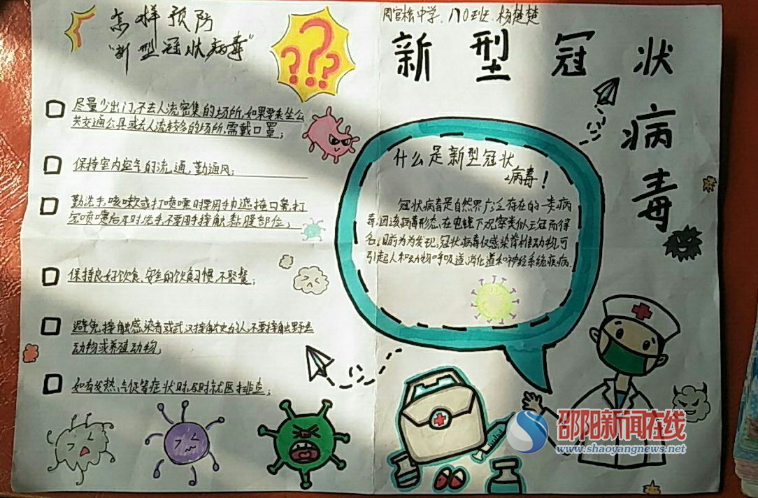 怎样预防
"新型冠状病毒"
尽量少出门,不去人流密集的场所,如果要乘坐公
共交通公具或去人流较多的场所,需戴口罩;
保持室内空气的流通,勤通风;
勤洗手,咳嗽或打喷嚏时要用手巾遮掩口鼻,打
完喷嚏后及时洗手,不要用手接触黏膜部位;
保持良好饮食,安全的饮食习惯,不聚餐;
避免接触感染者或武汉接触史的人,不要接触野生
动物或养殖动物;
如有发热,气促等症状时,及时就医排查;
???
周官桥中学 170班 杨楚楚
新型冠状病毒
什么是新型冠状
病毒!
冠状病毒是自然界广泛存在的一类病
毒,因该病毒形态,在电镜下观察类似王冠而得
名,目前为为发现,冠状病毒仅感染脊椎动物,可
引起人和动物呼吸道,消化道和神经系统疾病
邵阳新闻在线
www.shaoyangnews.net